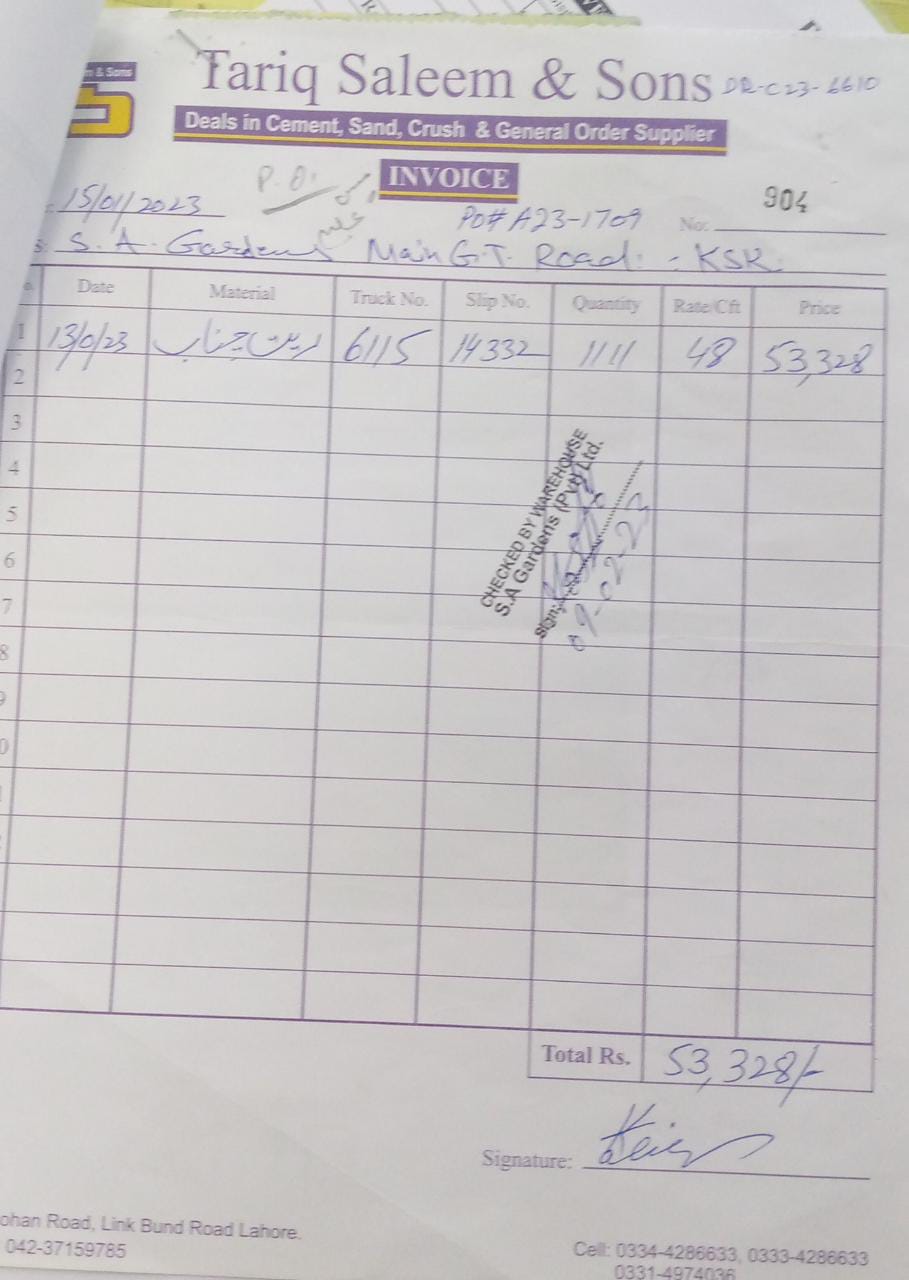 & Sons
Tariq Saleem & Sons DR-C23-6610
Deals in Cement, Sand, Crush & General Order Supplier
INVOICE
P.O.
15/01/2023 PO# A23-1709 No: 904
S. A. Gardens Main G.T. Road. - KSK.
Date Material Truck No. Slip No. Quantity Rate/Cft Price
1 13/0/23 ریت چناب 6115 14332 1111 48 53,328
2
3
4
5
6
7
8
CHECKED BY WAREHOUSE
S.A Gardens (Pvt) Ltd.
Sign:
09-02-23
Total Rs. 53,328/-
Signature:
Road, Link Bund Road Lahore.
042-37159785
Cell: 0334-4286633, 0333-4286633
0331-4974036